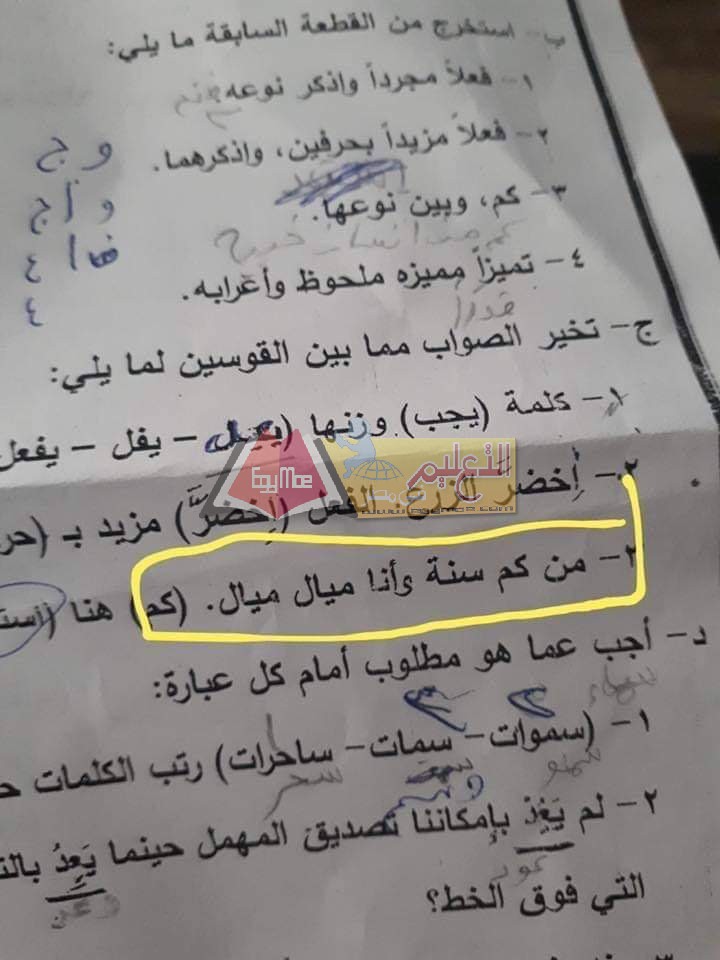 ب- استخرج من القطعة السابقة ما يلي:
١- فعلاً مجرداً واذكر نوعه.
٢- فعلاً مزيداً بحرفين، واذكرهما.
٣- كم، وبين نوعها.
٤- تميزاً مميزه ملحوظ وأعرابه.
قدراً
ج- تخير الصواب مما بين القوسين لما يلي:
١- كلمة (يجب) وزنها (يعل - يفل - يفعل
٢- اِخضرَّ الزرع. الفعل (اِخضرَّ) مزيد بـ (حر
التعليم
٢- من كم سنة وأنا ميال ميال. (كم) هنا (است
د- أجب عما هو مطلوب أمام كل عبارة:
١- (سموات- سمات- ساحرات) رتب الكلمات ح
سمو
سحر
٢- لم يَعُدْ بإمكاننا تصديق المهمل حينما يَعِدُ بالت
عود
وعد
التي فوق الخط؟